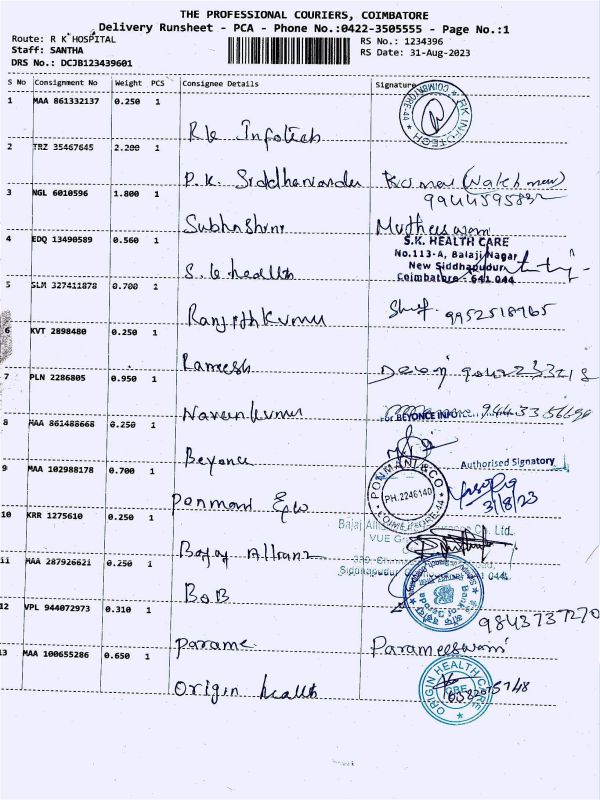 THE PROFESSIONAL COURIERS, COIMBATORE
Delivery Runsheet - PCA - Phone No.:0422-3505555 - Page No.:1
Route: R K HOSPITAL
Staff: SANTHA
DRS No.: DCJB123439601
RS No.: 1234396
RS Date: 31-Aug-2023
S No Consignment No Weight PCS Consignee Details Signature
1 MAA 861332137 0.250 1
RK Infotech
RK INFOTECH COIMBATORE-44
2 TRZ 35467645 2.200 1
P.K. Siddharvandu Kumar (Watch man)
9944595832
3 NGL 6010596 1.800 1
Subhashini Mutheeswari
4 EDQ 13490589 0.560 1
S.K health
S.K. HEALTH CARE
No.113-A, Balaji Nagar
New Siddhapudur
Coimbatore - 641 044
5 SLM 327411878 0.700 1
Ranjithkumar 9952518765
6 KVT 2898480 0.250 1
Rameesh
7 PLN 2286805 0.950 1
Naveenkumar
8 MAA 861488668 0.250 1
Beyonce
For BEYONCE INFO
Authorised Signatory
9 MAA 102988178 0.700 1
Ponmani &co
PONMANI & CO
PH.2246140
COIMBATORE-44
3/8/23
10 KRR 1275610 0.250 1
Bajaj Allianz
Bajaj Co. Ltd.
VUE
Siddhapudur
11 MAA 287926621 0.250 1
BOB
Bank of Baroda
12 VPL 944072973 0.310 1
9843737270
Parame Parameeswari
13 MAA 100655286 0.650 1
Origin health
ORIGIN HEALTH
CBE